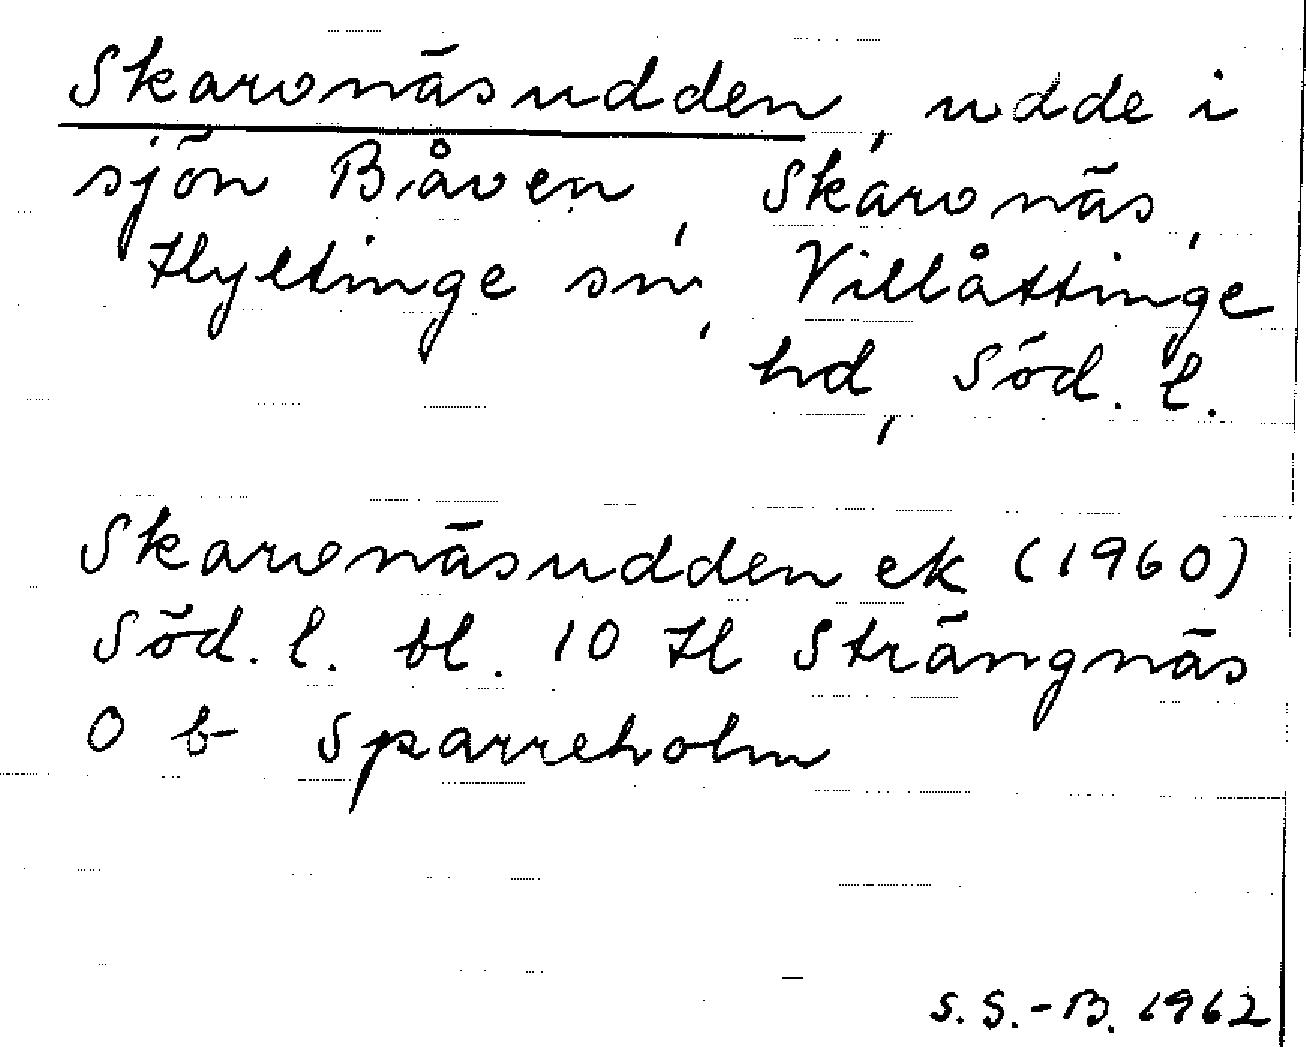 Skarvnäsudden, udde i
sjön Båven, Skarvnäs,
Hyltinge sn, Villåttinge
hd, Söd. l.
Skarvnäsudden ek (1960)
Söd. l. bl. 10 H Strängnäs
0 b Sparreholm
S. S.-B. 1962